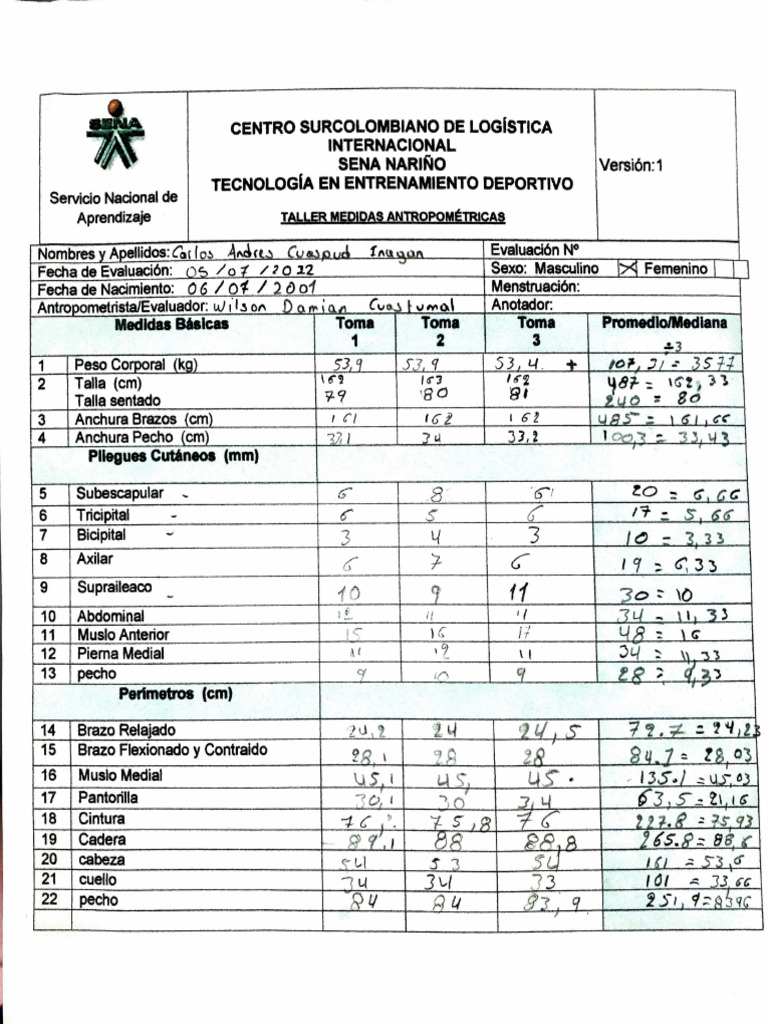 SENA
Servicio Nacional de
Aprendizaje
CENTRO SURCOLOMBIANO DE LOGÍSTICA
INTERNACIONAL
SENA NARIÑO
TECNOLOGÍA EN ENTRENAMIENTO DEPORTIVO
TALLER MEDIDAS ANTROPOMÉTRICAS
Versión:1
Nombres y Apellidos: Carlos Andres Cuaspud Inagan Evaluación Nº
Fecha de Evaluación: 05/07/2022 Sexo: Masculino X Femenino
Fecha de Nacimiento: 06/07/2001 Menstruación:
Antropometrista/Evaluador: Wilson Damian Cuastumal Anotador:
Medidas Básicas Toma 1 Toma 2 Toma 3 Promedio/Mediana
÷3
1 Peso Corporal (kg) 53,9 53,9 53,4 + 107,21= 3577
2 Talla (cm) 162 163 162 487= 162,33
Talla sentado 79 80 81 240 = 80
3 Anchura Brazos (cm) 161 162 162 485= 161,66
4 Anchura Pecho (cm) 33,1 34 33,2 100,3= 33,43
Pliegues Cutáneos (mm)
5 Subescapular - 6 8 6 20 = 6,66
6 Tricipital - 6 5 6 17 = 5,66
7 Bicipital - 3 4 3 10 = 3,33
8 Axilar 6 7 6 19 = 6,33
9 Supraileaco - 10 9 11 30=10
10 Abdominal 12 11 11 34= 11,33
11 Muslo Anterior 15 16 17 48= 16
12 Pierna Medial 11 12 11 34 = 11,33
13 pecho 9 10 9 28= 9,33
Perímetros (cm)
14 Brazo Relajado 24,2 24 24,5 72.7=24,23
15 Brazo Flexionado y Contraido 28,1 28 28 84.1= 28,03
16 Muslo Medial 45,1 45, 45. 135.1=45,03
17 Pantorilla 30,1 30 3,4 63,5=21,16
18 Cintura 76, 75,8 76 227.8=75,93
19 Cadera 89.1 88 88,8 265.8=88,6
20 cabeza 54 53 54 161 =53,6
21 cuello 34 34 33 101 = 33,66
22 pecho 84 84 83,9 251,9=8396